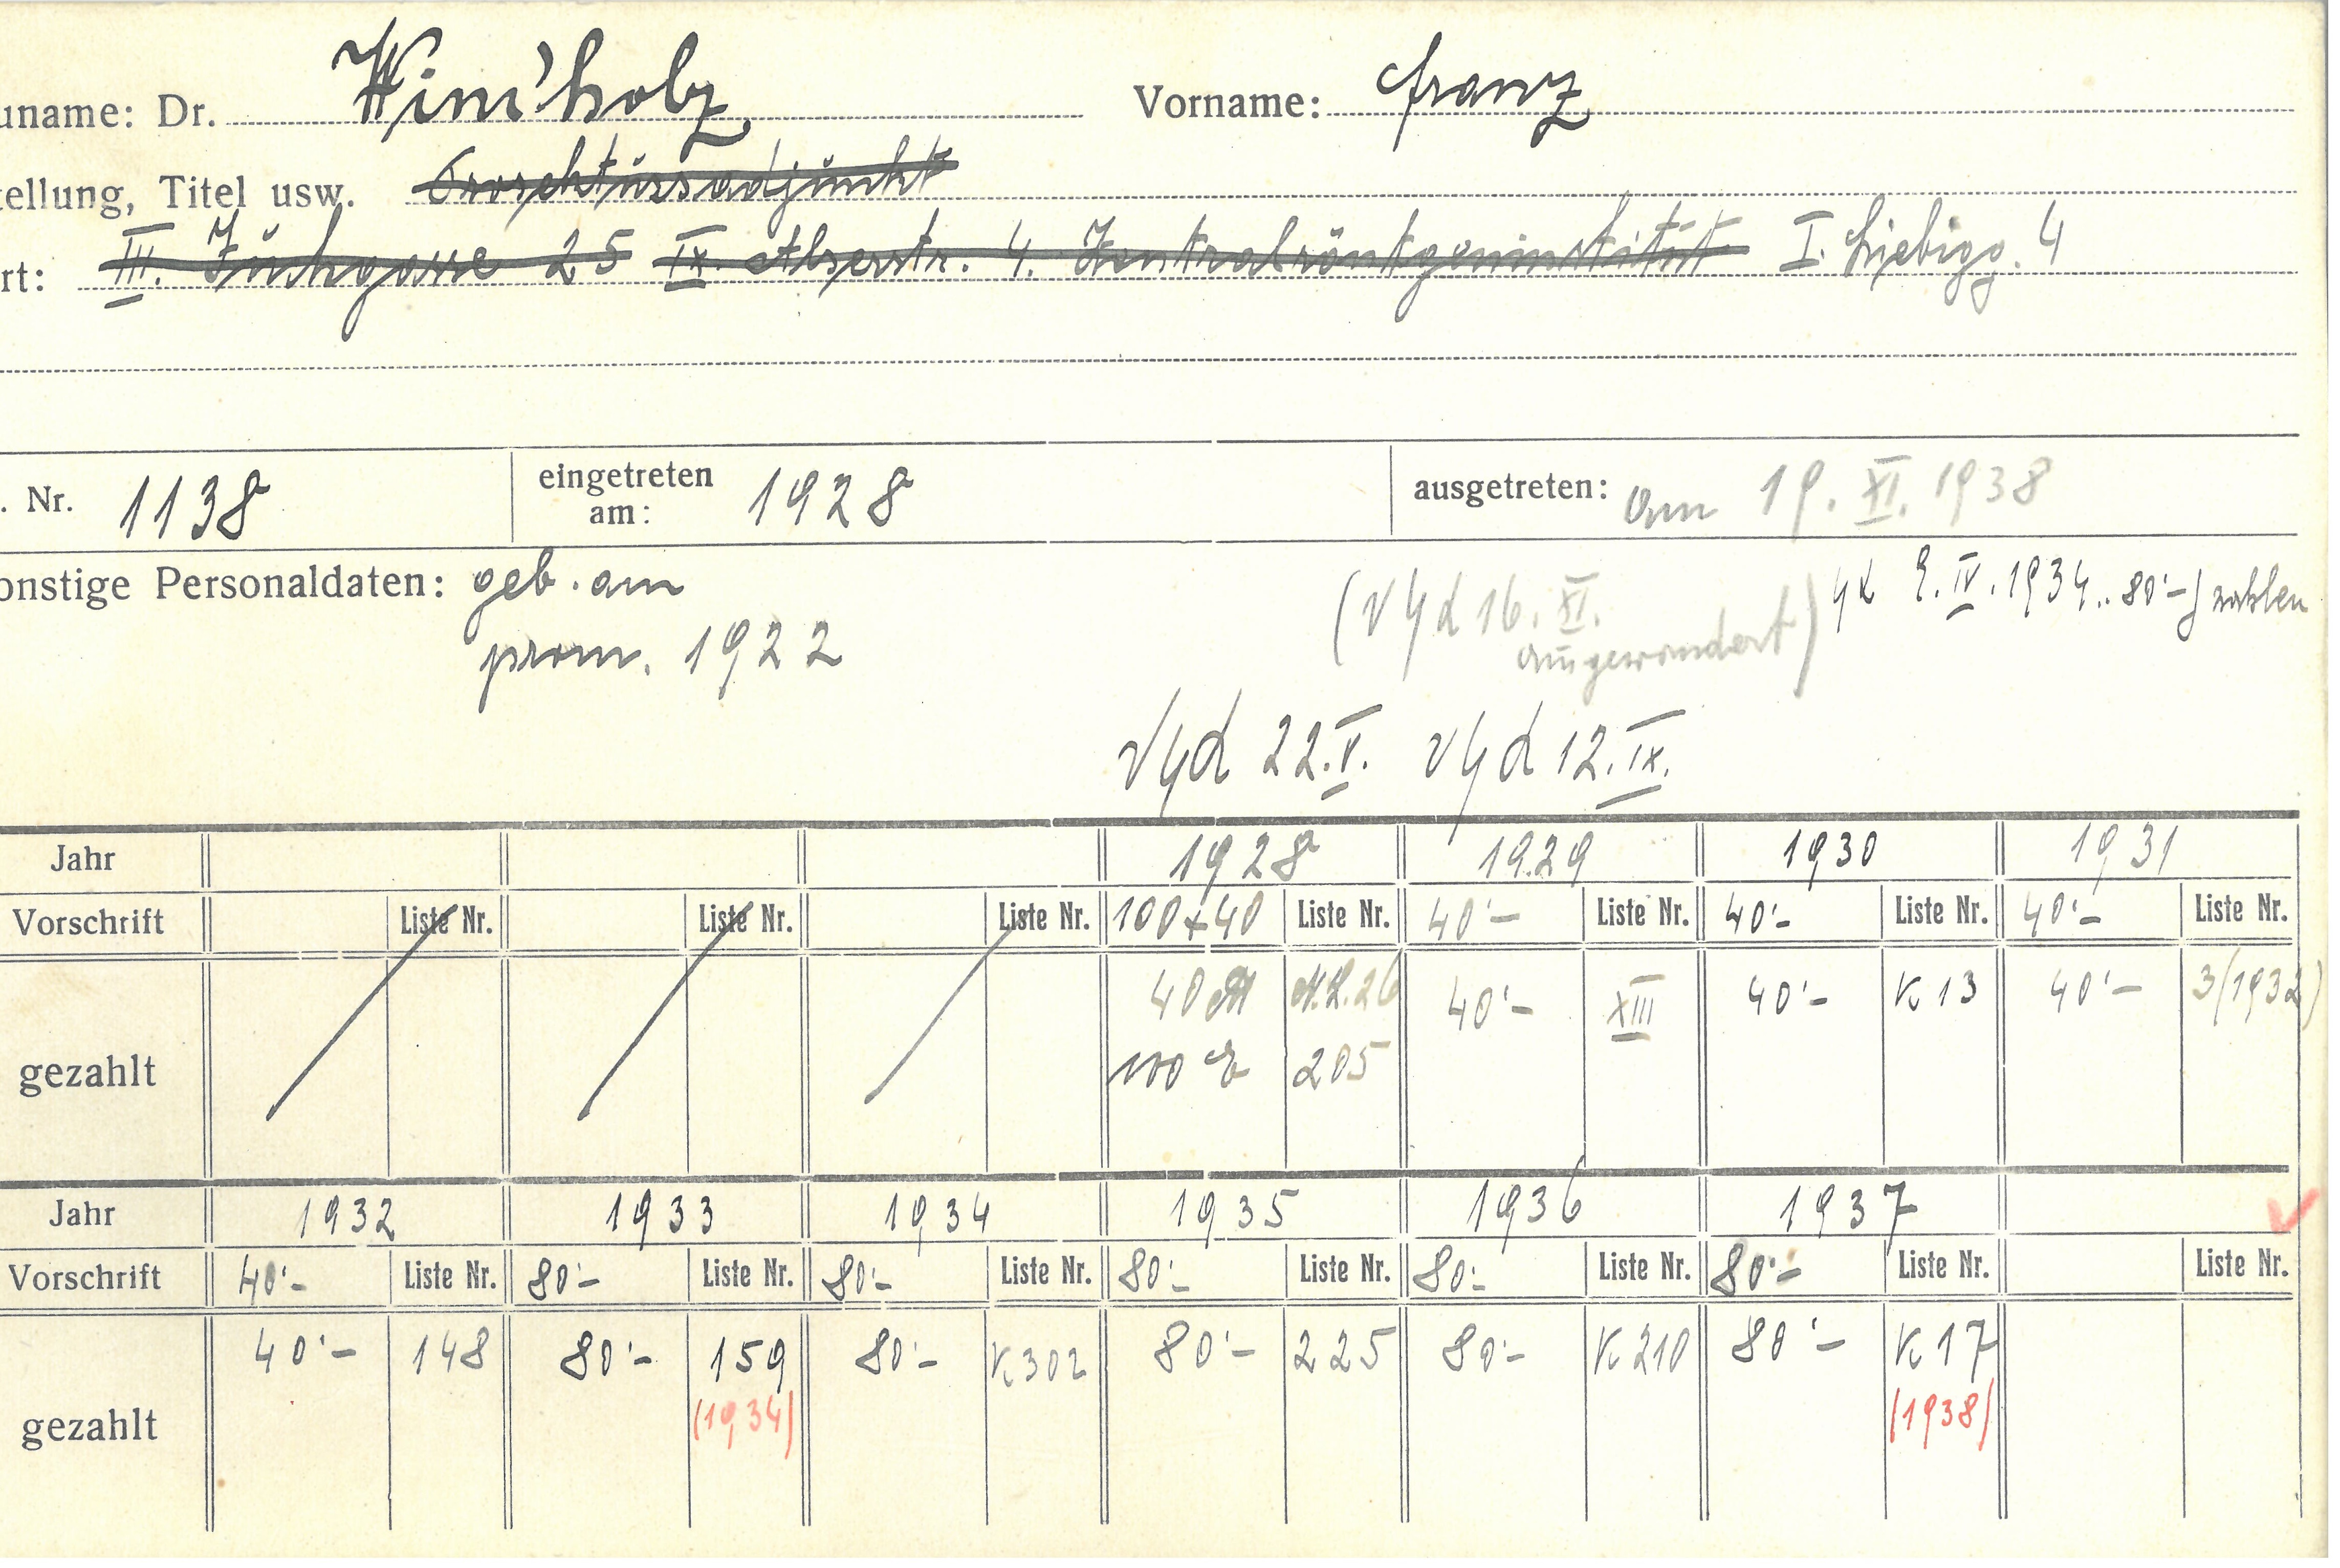 uname: Dr. Windholz Vorname: Franz
tellung, Titel usw. Prosektursadjunkt
rt: III. Juchgasse 25 IX. Alserstr. 4. Zentralröntgeninstitut I. Liebigg. 4
. Nr. 1138 eingetreten am: 1928 ausgetreten: am 19. XI. 1938
onstige Personaldaten: geb. am
prom. 1922
(v 16. XI. ausgewandert) IV. 1934 80'– zahlen
22. V. 12. IX.
Jahr 1928 1929 1930 1931
Vorschrift Liste Nr. Liste Nr. Liste Nr. 100+40 Liste Nr. 40'– Liste Nr. 40'– Liste Nr. 40'– Liste Nr.
40 M 26 40'– XIII 40'– K 13 40'– 3/1932)
gezahlt 100 E 205
Jahr 1932 1933 1934 1935 1936 1937
Vorschrift 40'– Liste Nr. 80'– Liste Nr. 80'– Liste Nr. 80'– Liste Nr. 80'– Liste Nr. 80'– Liste Nr. Liste Nr.
40'– 148 80'– 159 80'– K 302 80'– 225 80'– K 210 80'– K 17
gezahlt (1934) (1938)